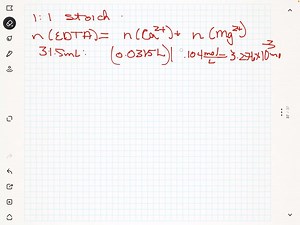 1:1 stoich
n(EDTA) = n(Ca²⁺) + n(Mg²⁺)
31.5mL: (0.0315L) | .104 mol/L = 3.276×10⁻³ mol